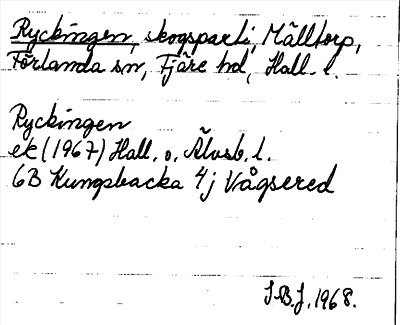 Ryckingen, skogsparti, Mälltorp,
Förlanda sn, Fjäre hd, Hall. l.
Ryckingen
ek (1967) Hall. o. Älvsb. l.
6B Kungsbacka 4j Vågsered
S.B.J. 1968.